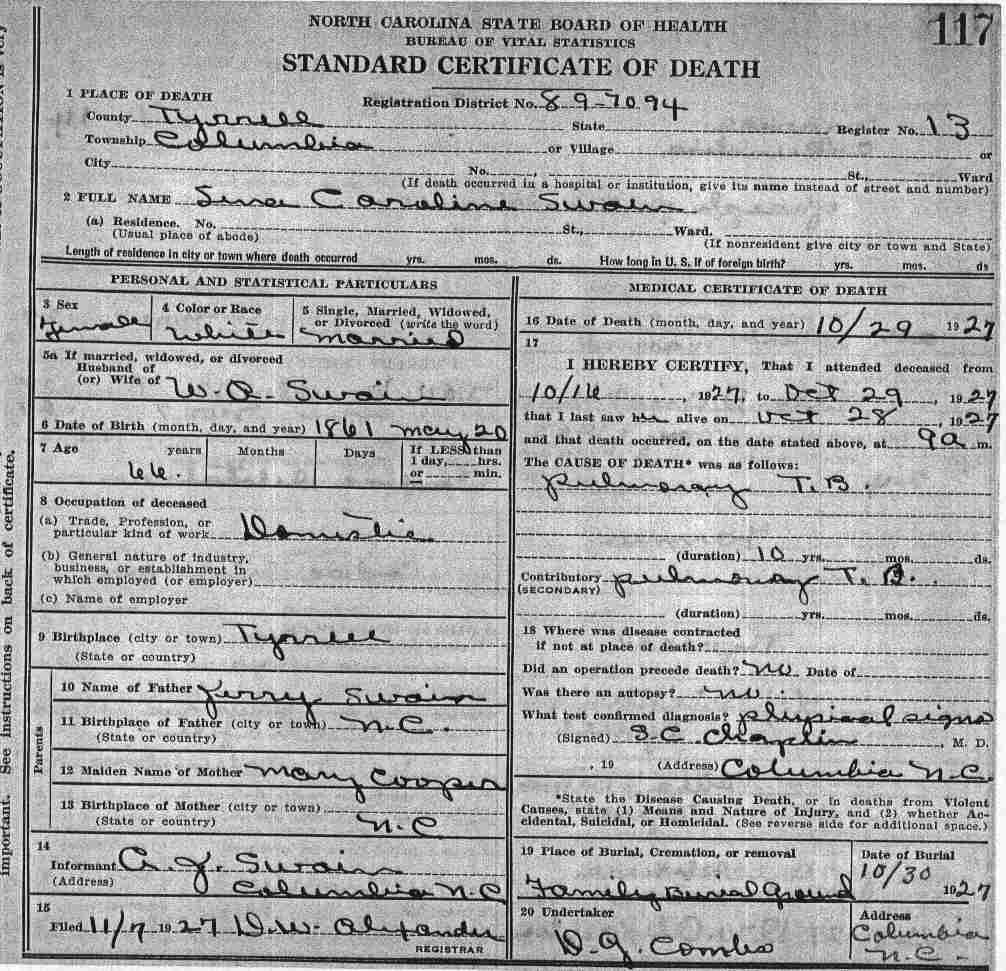 117
NORTH CAROLINA STATE BOARD OF HEALTH
BUREAU OF VITAL STATISTICS
STANDARD CERTIFICATE OF DEATH
1 PLACE OF DEATH
Registration District No. 89-7094
County Tyrrell State Register No. 13
Township Columbia or Village or
City No. St., Ward
(If death occurred in a hospital or institution, give its name instead of street and number)
2 FULL NAME Caroline Swain
(a) Residence. No. St., Ward.
(Usual place of abode) (If nonresident give city or town and State)
Length of residence in city or town where death occurred yrs. mos. ds. How long in U. S. if of foreign birth? yrs. mos. ds
PERSONAL AND STATISTICAL PARTICULARS
3 Sex
Female
4 Color or Race
White
5 Single, Married, Widowed,
or Divorced (write the word)
Married
5a If married, widowed, or divorced
Husband of
(or) Wife of W. A. Swain
6 Date of Birth (month, day, and year) 1861 May 20
7 Age years Months Days If LESS than
1 day, hrs.
or min.
66.
8 Occupation of deceased
(a) Trade, Profession, or
particular kind of work Domistic
(b) General nature of industry,
business, or establishment in
which employed (or employer)
(c) Name of employer
9 Birthplace (city or town) Tyrrell
(State or country)
Parents
10 Name of Father Jerry Swain
11 Birthplace of Father (city or town) N.C.
(State or country)
12 Maiden Name of Mother Mary Cooper
13 Birthplace of Mother (city or town)
(State or country) N.C
14
Informant Swain
(Address) Columbia N.C
15
Filed 11/7 1927 D.W. Alexander
REGISTRAR
MEDICAL CERTIFICATE OF DEATH
16 Date of Death (month, day, and year) 10/29 1927
17
I HEREBY CERTIFY, That I attended deceased from
10/16, 1927, to Oct 29, 1927
that I last saw her alive on Oct 28, 1927
and that death occurred, on the date stated above, at 9a m.
The CAUSE OF DEATH* was as follows:
Pulmonary T.B.
(duration) 10 yrs. mos. ds.
Contributory Pulmonary T.B.
(SECONDARY)
(duration) yrs. mos. ds.
18 Where was disease contracted
if not at place of death?
Did an operation precede death? No Date of
Was there an autopsy? No.
What test confirmed diagnosis? Physical signs
(Signed) S.C Chaplin, M. D.
, 19 (Address) Columbia N.C.
*State the Disease Causing Death, or in deaths from Violent
Causes, state (1) Means and Nature of Injury, and (2) whether Ac-
cidental, Suicidal, or Homicidal. (See reverse side for additional space.)
19 Place of Burial, Cremation, or removal
Family Burial Ground
Date of Burial
10/30
1927
20 Undertaker
Combs
Address
Columbia
N.C.
important. See instructions on back of certificate.